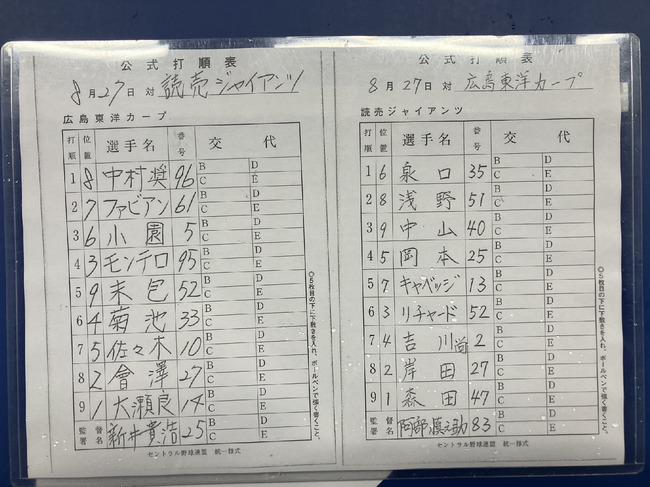 公式打順表
8月27日 対 読売ジャイアンツ
広島東洋カープ
打順 位置 選手名 番号 交代
1 8 中村奨 96 B D C E
2 7 ファビアン 61 B D C E
3 6 小園 5 B D C E
4 3 モンテロ 95 B D C E
5 9 末包 52 B D C E
6 4 菊池 33 B D C E
7 5 佐々木 10 B D C E
8 2 會澤 27 B D C E
9 1 大瀬良 14 B D C E
監督署名 新井貴浩 25 B D C E
セントラル野球連盟 統一様式
◎5枚目の下に下敷きを入れ、ボールペンで強く書くこと。
公式打順表
8月27日 対 広島東洋カープ
読売ジャイアンツ
打順 位置 選手名 番号 交代
1 6 泉口 35 B D C E
2 8 浅野 51 B D C E
3 9 中山 40 B D C E
4 5 岡本 25 B D C E
5 7 キャベッジ 13 B D C E
6 3 リチャード 52 B D C E
7 4 吉川尚 2 B D C E
8 2 岸田 27 B D C E
9 1 森田 47 B D C E
監督署名 阿部慎之助 83 B D C E
セントラル野球連盟 統一様式
◎5枚目の下に下敷きを入れ、ボールペンで強く書くこと。